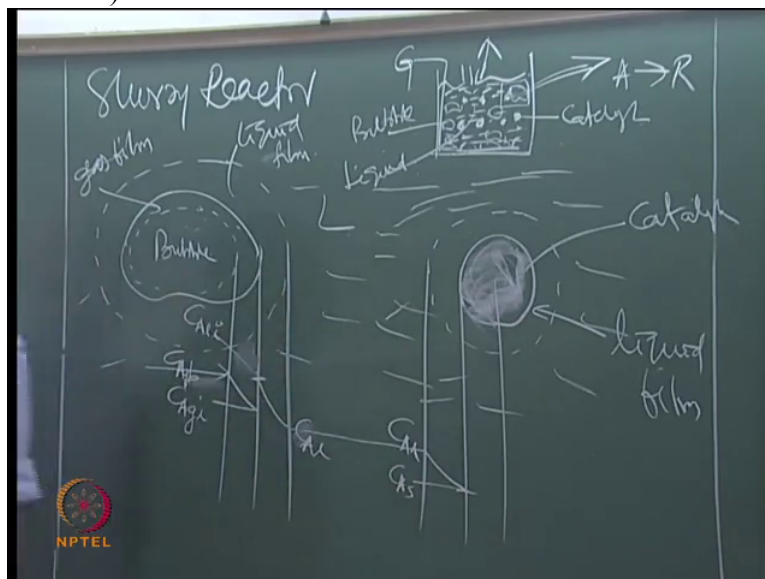 Slurry Reactor
G
A → R
Bubble
Catalyst
Liquid
gas film
liquid film
Bubble
L
Catalyst
liquid film
C_Ali
C_Ab
C_Agi
C_Al
C_Al
C_As
NPTEL